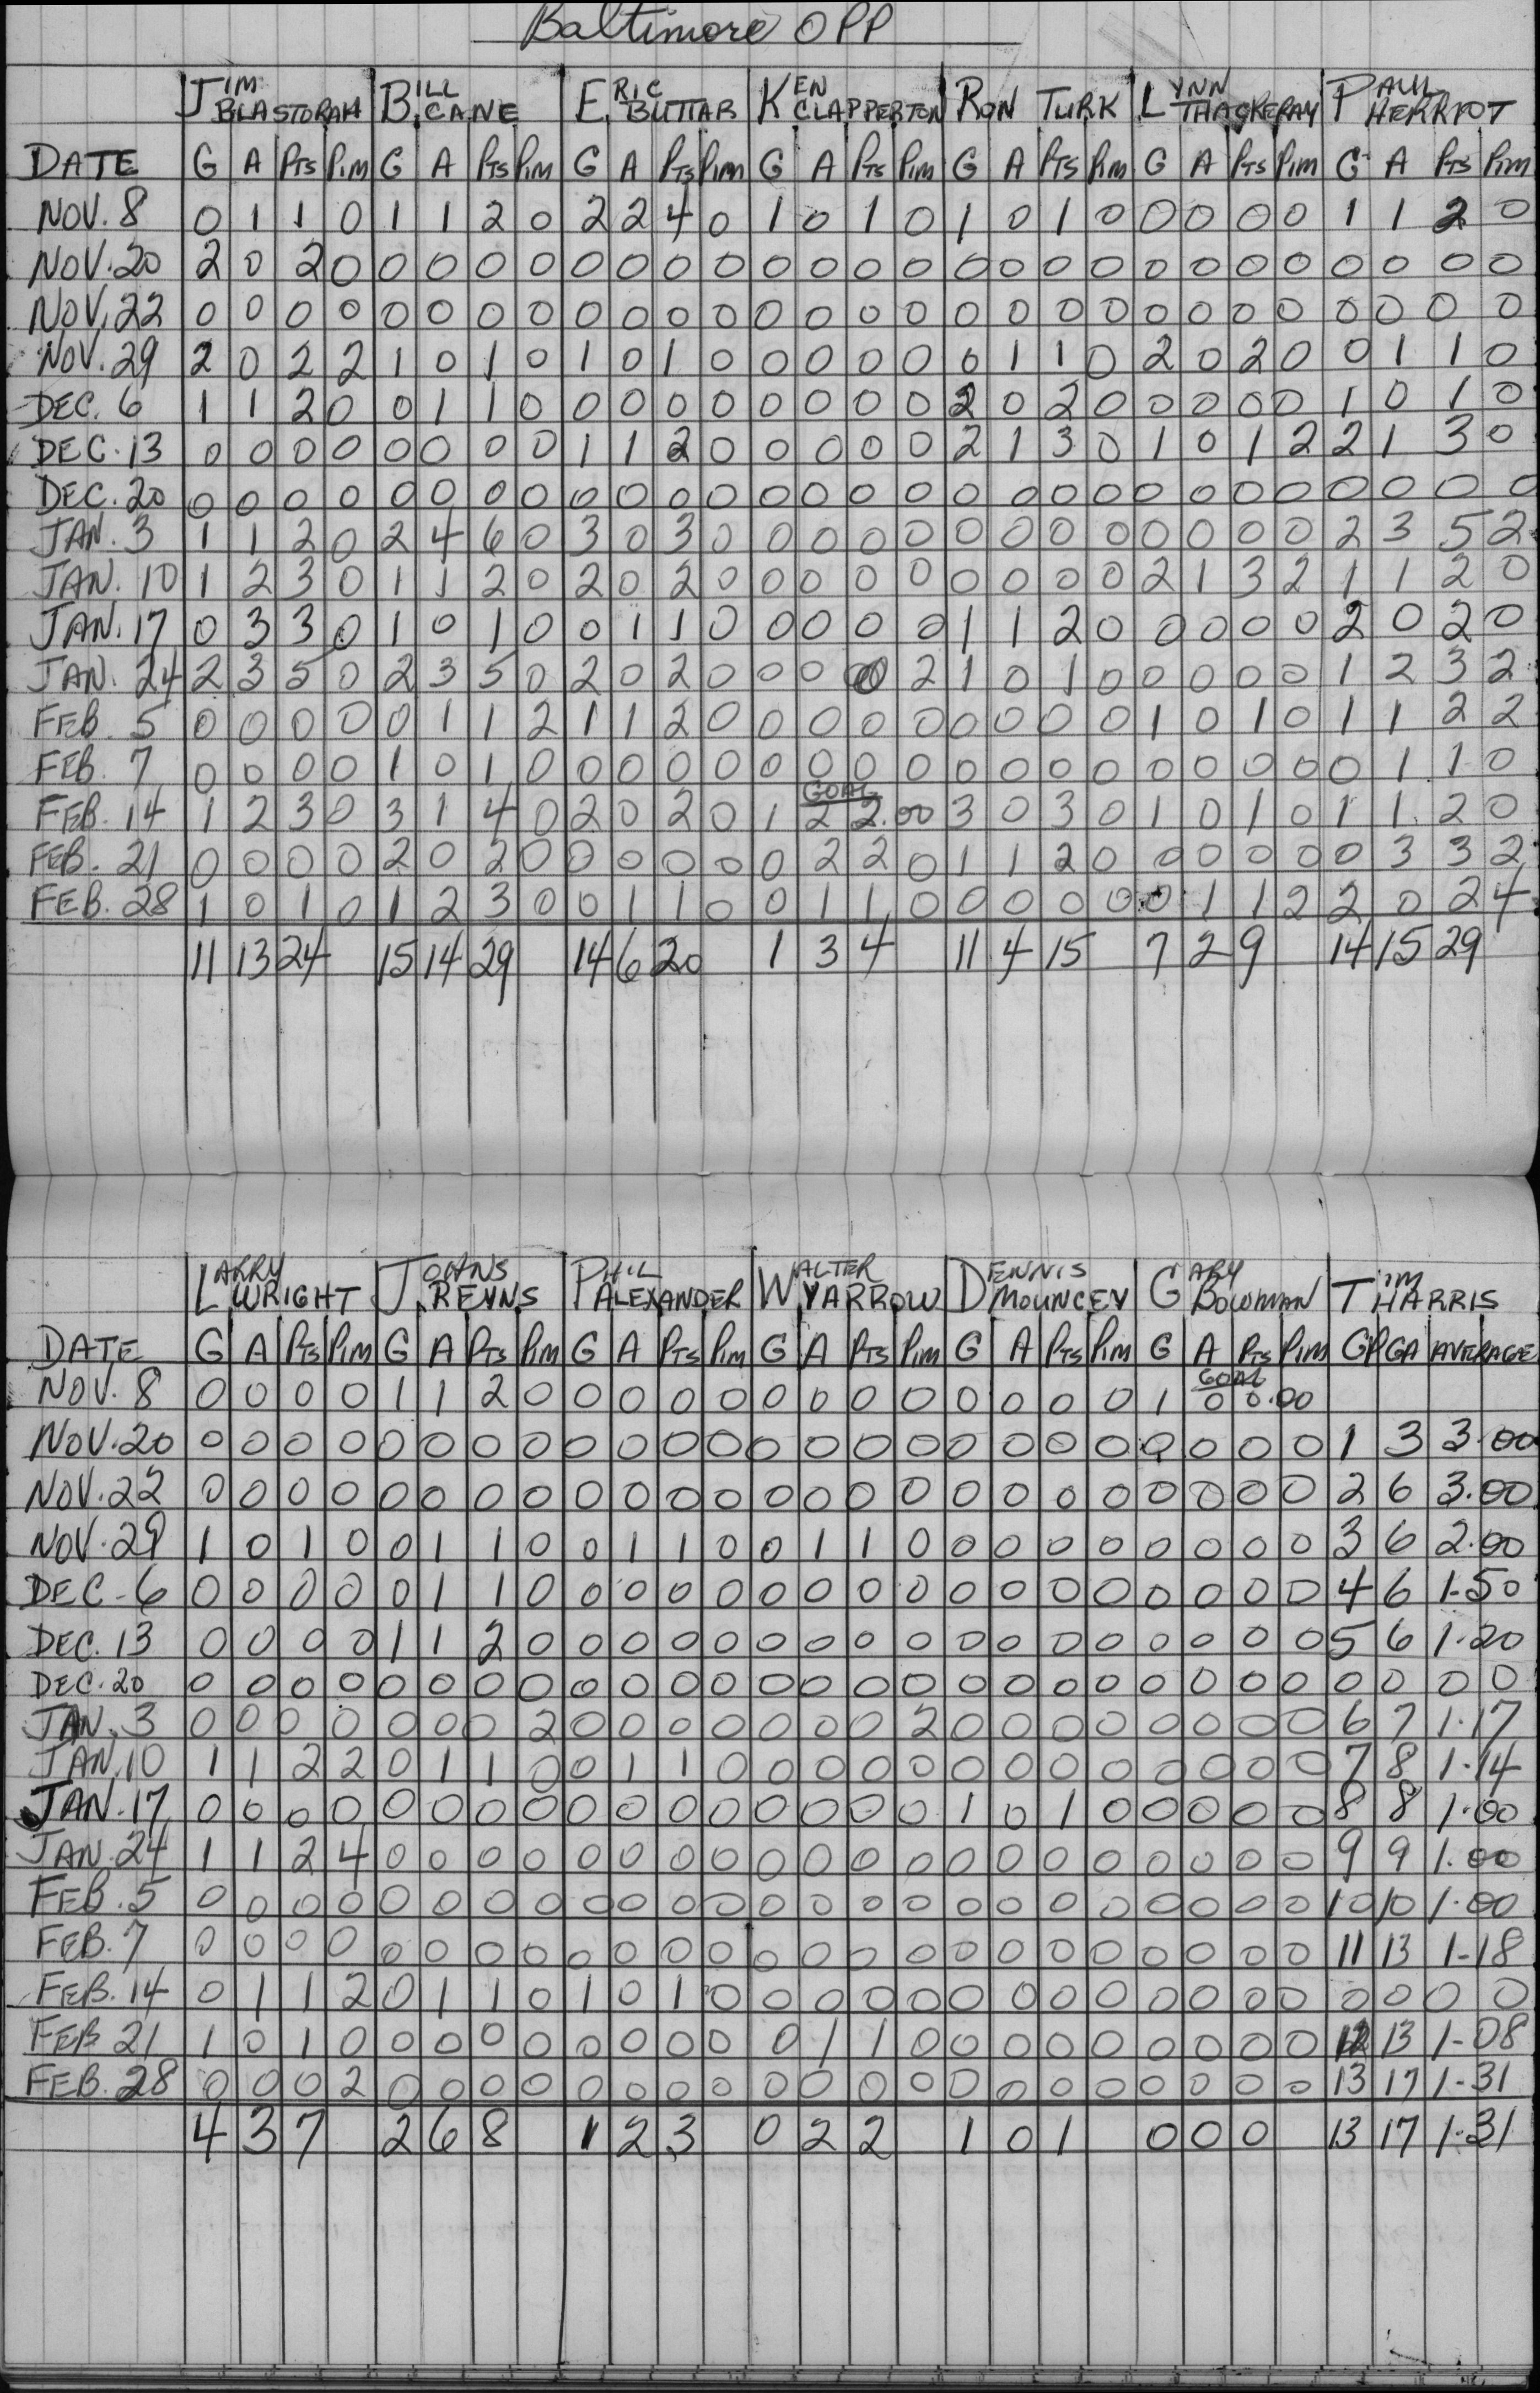 Baltimore OPP
JIM BLASTORAH BILL CANE ERIC BUTTAR KEN CLAPPERTON RON TURK LYNN THACKERAY PAUL HERRIOT
DATE G A PTS PIM G A PTS PIM G A PTS PIM G A PTS PIM G A PTS PIM G A PTS PIM G A PTS PIM
NOV. 8 0 1 1 0 1 1 2 0 2 2 4 0 1 0 1 0 1 0 1 0 0 0 0 0 1 1 2 0
NOV. 20 2 0 2 0 0 0 0 0 0 0 0 0 0 0 0 0 0 0 0 0 0 0 0 0 0 0 0 0
NOV. 22 0 0 0 0 0 0 0 0 0 0 0 0 0 0 0 0 0 0 0 0 0 0 0 0 0 0 0 0
NOV. 29 2 0 2 2 1 0 1 0 1 0 1 0 0 0 0 0 0 1 1 0 2 0 2 0 0 1 1 0
DEC. 6 1 1 2 0 0 1 1 0 0 0 0 0 0 0 0 0 2 0 2 0 0 0 0 0 1 0 1 0
DEC. 13 0 0 0 0 0 0 0 0 1 1 2 0 0 0 0 0 2 1 3 0 1 0 1 2 2 1 3 0
DEC. 20 0 0 0 0 0 0 0 0 0 0 0 0 0 0 0 0 0 0 0 0 0 0 0 0 0 0 0 0
JAN. 3 1 1 2 0 2 4 6 0 3 0 3 0 0 0 0 0 0 0 0 0 0 0 0 0 2 3 5 2
JAN. 10 1 2 3 0 1 1 2 0 2 0 2 0 0 0 0 0 0 0 0 0 2 1 3 2 1 1 2 0
JAN. 17 0 3 3 0 1 0 1 0 0 1 1 0 0 0 0 0 1 1 2 0 0 0 0 0 2 0 2 0
JAN. 24 2 3 5 0 2 3 5 0 2 0 2 0 0 0 0 2 1 0 1 0 0 0 0 0 1 2 3 2
FEB. 5 0 0 0 0 0 1 1 2 1 1 2 0 0 0 0 0 0 0 0 0 1 0 1 0 1 1 2 2
FEB. 7 0 0 0 0 1 0 1 0 0 0 0 0 0 0 0 0 0 0 0 0 0 0 0 0 0 1 1 0
GOAL
FEB. 14 1 2 3 0 3 1 4 0 2 0 2 0 1 2 2.00 3 0 3 0 1 0 1 0 1 1 2 0
FEB. 21 0 0 0 0 2 0 2 0 0 0 0 0 0 2 2 0 1 1 2 0 0 0 0 0 0 3 3 2
FEB. 28 1 0 1 0 1 2 3 0 0 1 1 0 0 1 1 0 0 0 0 0 0 1 1 2 2 0 2 4
11 13 24 15 14 29 14 6 20 1 3 4 11 4 15 7 2 9 14 15 29
LARRY WRIGHT JOHNS REYNS PHIL ALEXANDER WALTER YARROW DENNIS MOUNCEY GARY BOWMAN TIM HARRIS
DATE G A PTS PIM G A PTS PIM G A PTS PIM G A PTS PIM G A PTS PIM G A PTS PIM GP GA AVERAGE
GOAL
NOV. 8 0 0 0 0 1 1 2 0 0 0 0 0 0 0 0 0 0 0 0 0 1 0 0.00
NOV. 20 0 0 0 0 0 0 0 0 0 0 0 0 0 0 0 0 0 0 0 0 0 0 0 0 1 3 3.00
NOV. 22 0 0 0 0 0 0 0 0 0 0 0 0 0 0 0 0 0 0 0 0 0 0 0 0 2 6 3.00
NOV. 29 1 0 1 0 0 1 1 0 0 1 1 0 0 1 1 0 0 0 0 0 0 0 0 0 3 6 2.00
DEC-6 0 0 0 0 0 1 1 0 0 0 0 0 0 0 0 0 0 0 0 0 0 0 0 0 4 6 1-50
DEC. 13 0 0 0 0 1 1 2 0 0 0 0 0 0 0 0 0 0 0 0 0 0 0 0 0 5 6 1.20
DEC. 20 0 0 0 0 0 0 0 0 0 0 0 0 0 0 0 0 0 0 0 0 0 0 0 0 0 0 0 0
JAN. 3 0 0 0 0 0 0 0 2 0 0 0 0 0 0 0 2 0 0 0 0 0 0 0 0 6 7 1.17
JAN. 10 1 1 2 2 0 1 1 0 0 1 1 0 0 0 0 0 0 0 0 0 0 0 0 0 7 8 1.14
JAN. 17 0 0 0 0 0 0 0 0 0 0 0 0 0 0 0 0 1 0 1 0 0 0 0 0 8 8 1.00
JAN. 24 1 1 2 4 0 0 0 0 0 0 0 0 0 0 0 0 0 0 0 0 0 0 0 0 9 9 1.00
FEB. 5 0 0 0 0 0 0 0 0 0 0 0 0 0 0 0 0 0 0 0 0 0 0 0 0 10 10 1.00
FEB. 7 0 0 0 0 0 0 0 0 0 0 0 0 0 0 0 0 0 0 0 0 0 0 0 0 11 13 1-18
FEB. 14 0 1 1 2 0 1 1 0 1 0 1 0 0 0 0 0 0 0 0 0 0 0 0 0 0 0 0 0
FEB 21 1 0 1 0 0 0 0 0 0 0 0 0 0 1 1 0 0 0 0 0 0 0 0 0 12 13 1-08
FEB. 28 0 0 0 2 0 0 0 0 0 0 0 0 0 0 0 0 0 0 0 0 0 0 0 0 13 17 1-31
4 3 7 2 6 8 1 2 3 0 2 2 1 0 1 0 0 0 13 17 1.31